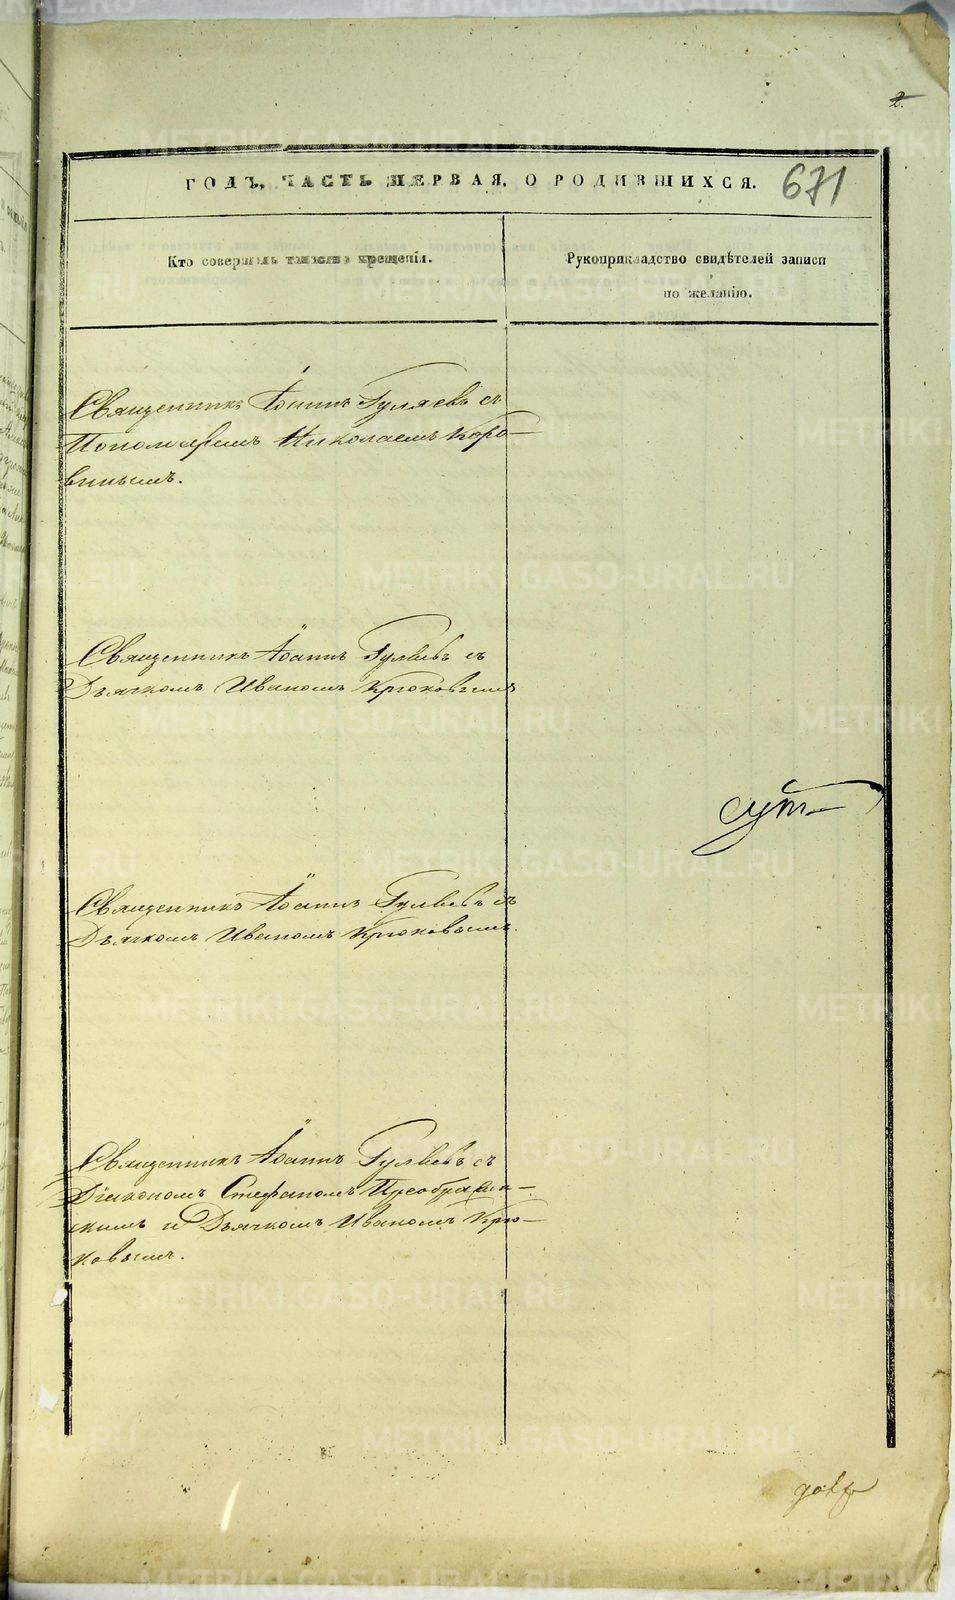 2.
ГОДЪ, ЧАСТЬ ПЕРВАЯ, О РОДИВШИХСЯ.
671
Кто совершалъ таинство крещенія.
Рукоприкладство свидѣтелей записи
по желанію.
Священникъ Іоаннъ Гуляевъ съ
Пономаремъ Николаемъ Коро-
винымъ.
Священникъ Іоаннъ Гуляевъ съ
Дьячкомъ Иваномъ Крюковымъ
Священникъ Іоаннъ Гуляевъ съ
Дьячкомъ Иваномъ Крюковымъ.
Священникъ Іоаннъ Гуляевъ съ
Діакономъ Стефаномъ Преображен-
скимъ и Дьячкомъ Иваномъ Крю-
ковымъ.
METRIKI.GASO-URAL.RU